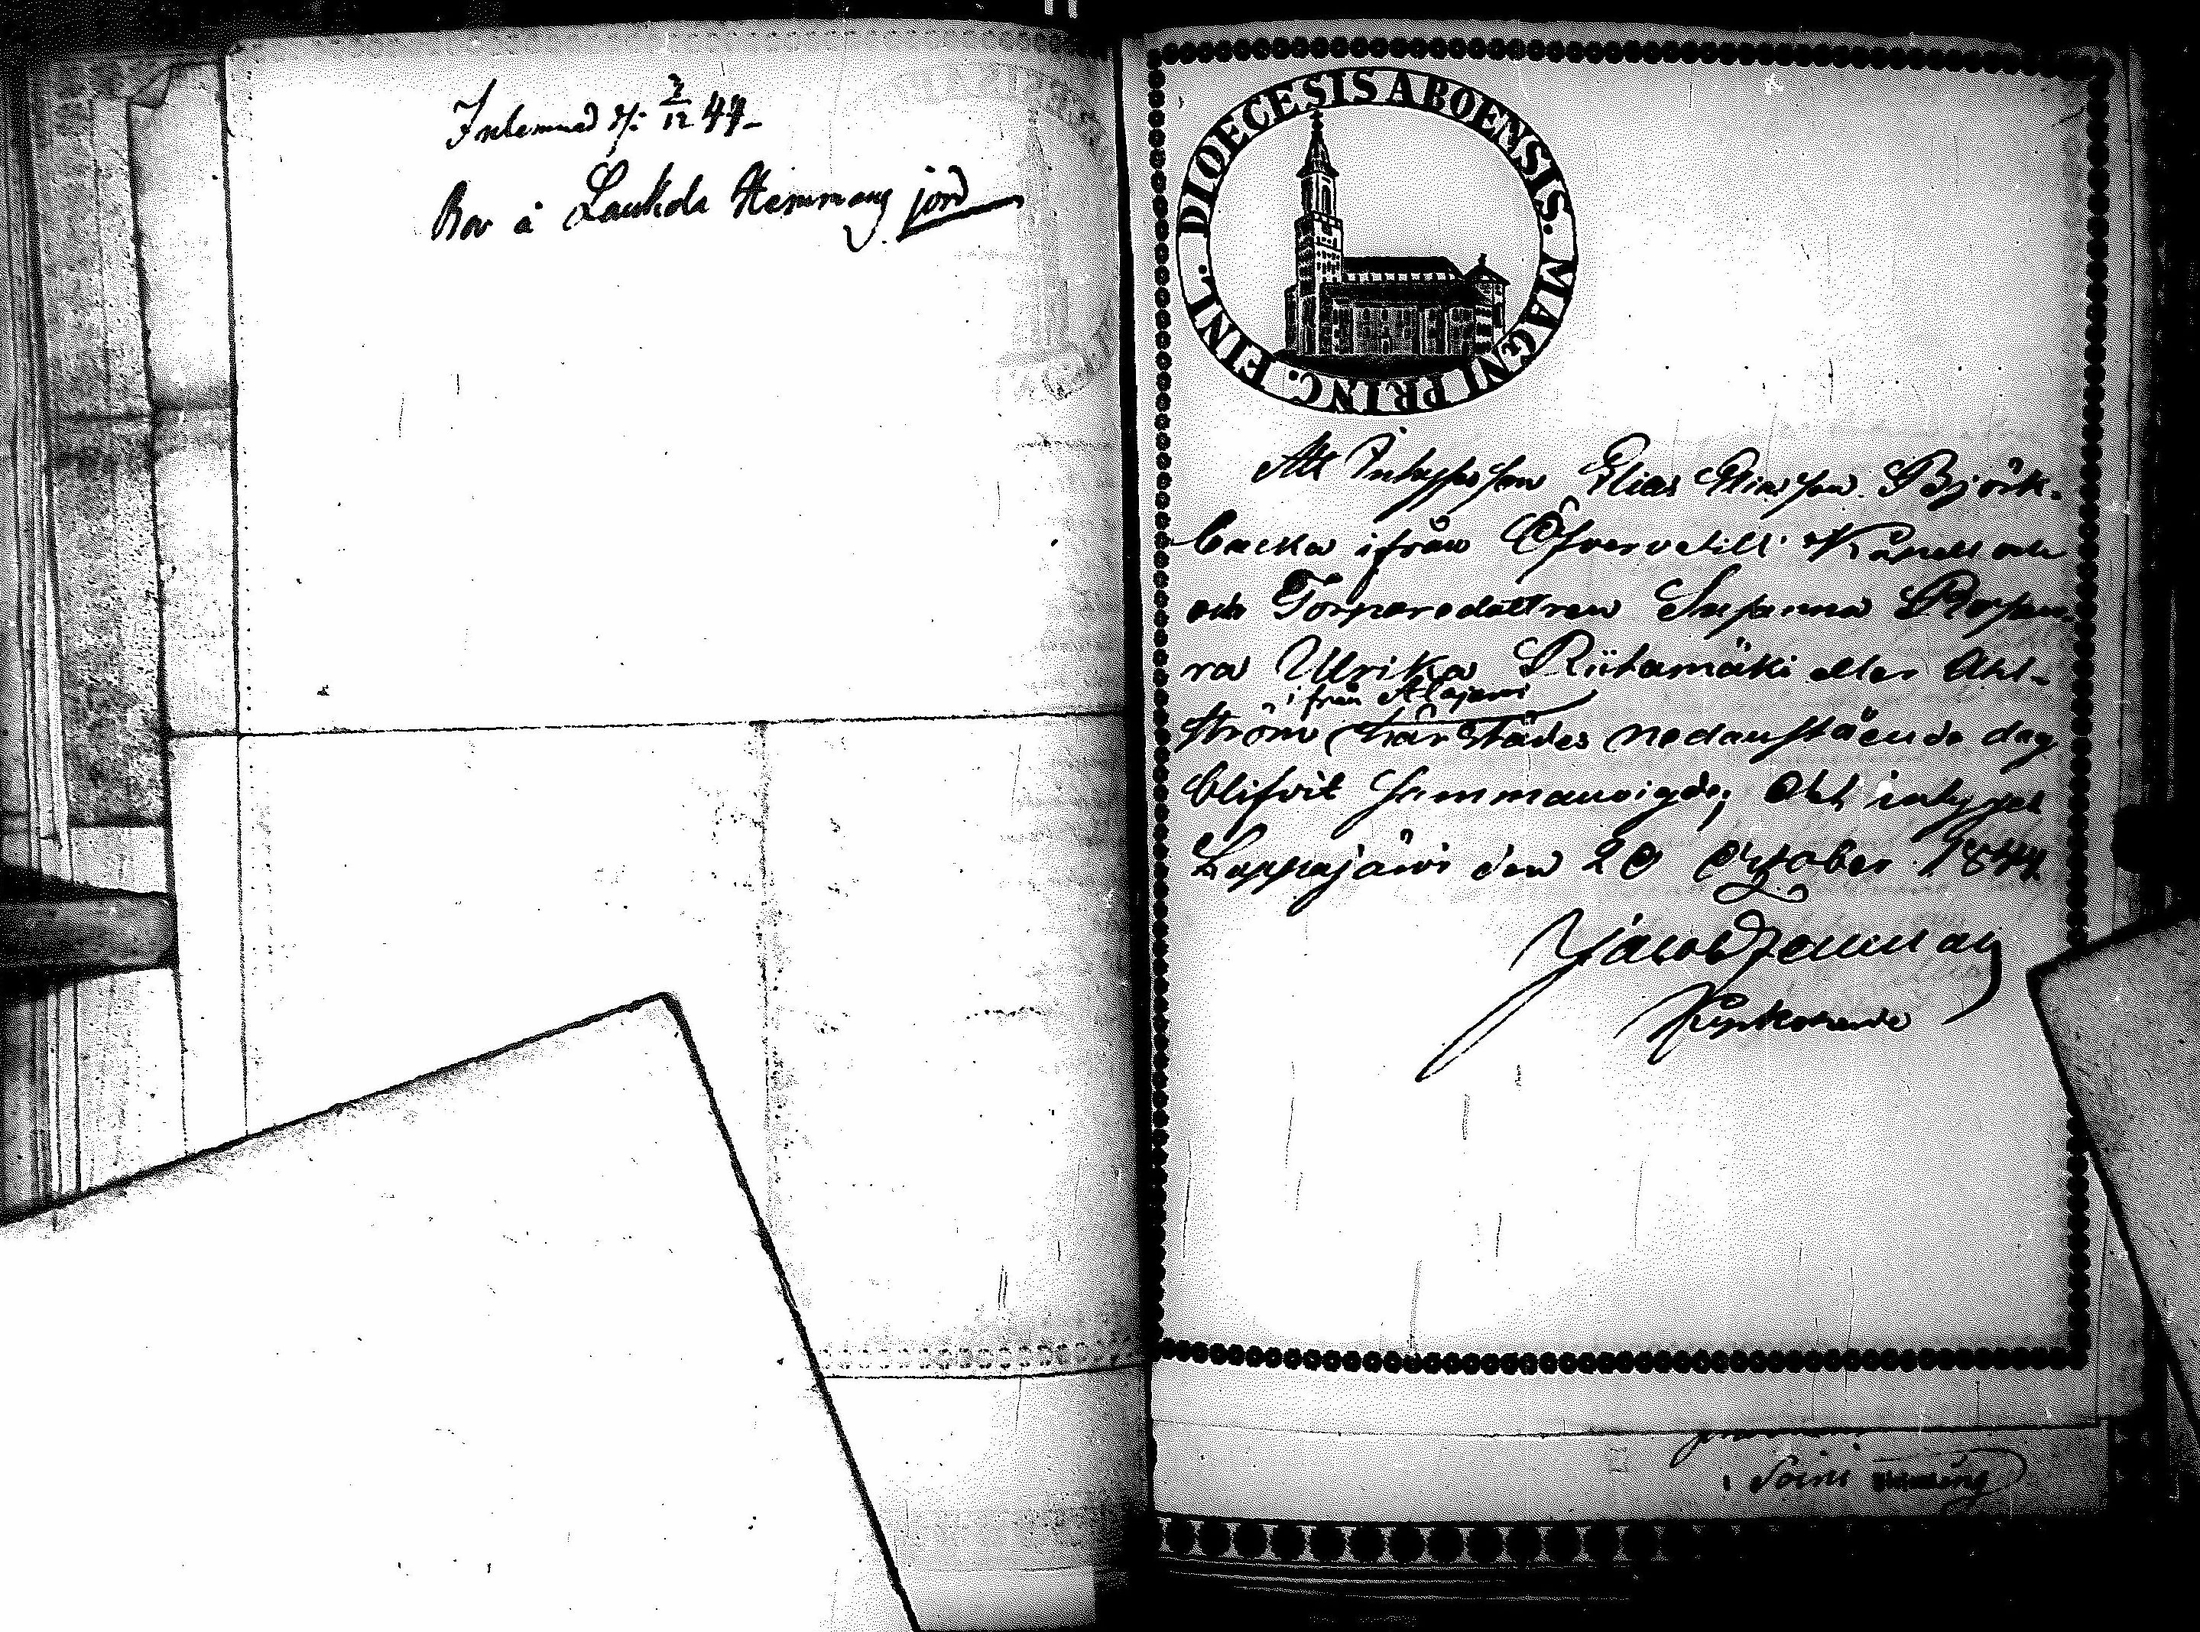 Inlemnad d: 2/12 44
Bor å Laukola Hemmans jord
DIOECESIS ABOENSIS. MAGNI PRINC. FINL.
Att Inhysesson Elias Eliasson Björk-
backa ifrån Öfvervetill Kapell och
och Torparedottren Susanna
ra Ulrika Riitamäki eller Ahl-
ifrån Alajervi
ström härstädes nedanstående dag
blifvit sammanvigde; Det intygar
Lappajärvi den 20 October 1844
Jacob
Kyrkoherde
Soini